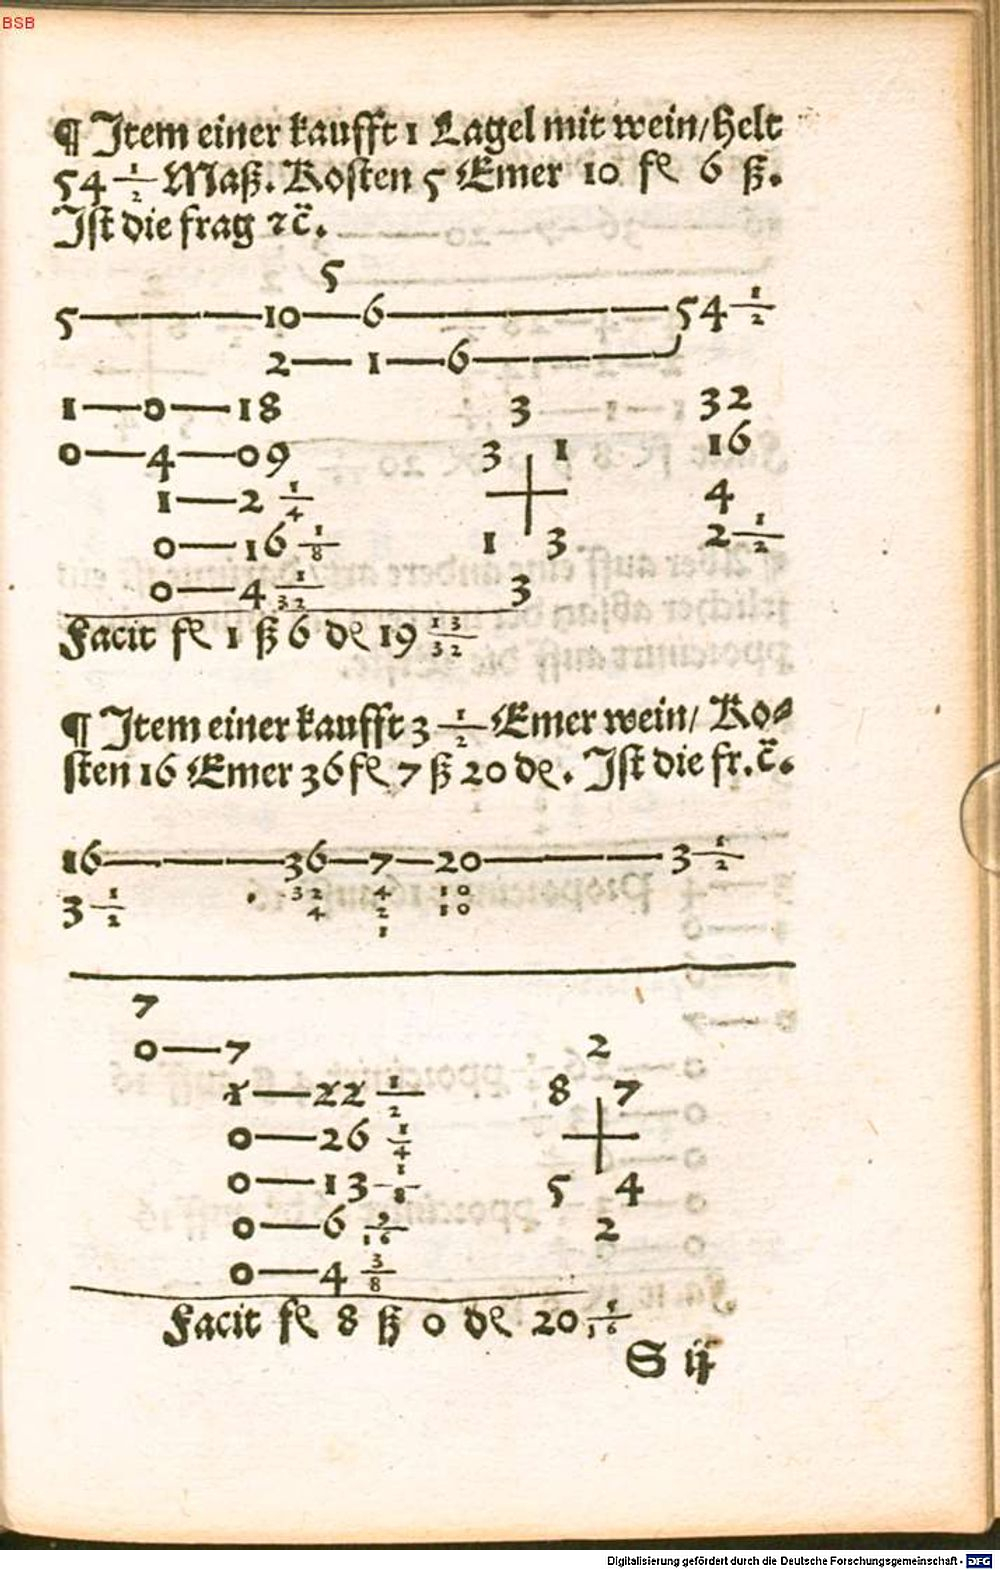 BSB
¶ Item einer kaufft 1 Lagel mit wein/helt
54 1/2 Maß. Kosten 5 Emer 10 fl 6 ß.
Ist die frag ⁊c̈.
5
5———10—6———54 1/2
2—1—6———
1—0—18 3 32
0—4—09 3 1 16
1—2 1/4 4
0—16 1/8 1 3 2 1/2
0—4 1/32 3
Facit fl 1 ß 6 de 19 13/32
¶ Item einer kaufft 3 1/2 Emer wein/ Ko⸗
sten 16 Emer 36 fl 7 ß 20 de. Ist die fr. c̈.
16———36—7—20———3 1/2
3 1/2 32 4 10
4 2 10
1
7
0—7 2
1—22 1/2 8 7
0—26 1/4
0—13 1/8 5 4
0—6 9/16 2
0—4 3/8
Facit fl 8 ß 0 de 20 1/16
S ij
Digitalisierung gefördert durch die Deutsche Forschungsgemeinschaft - DFG